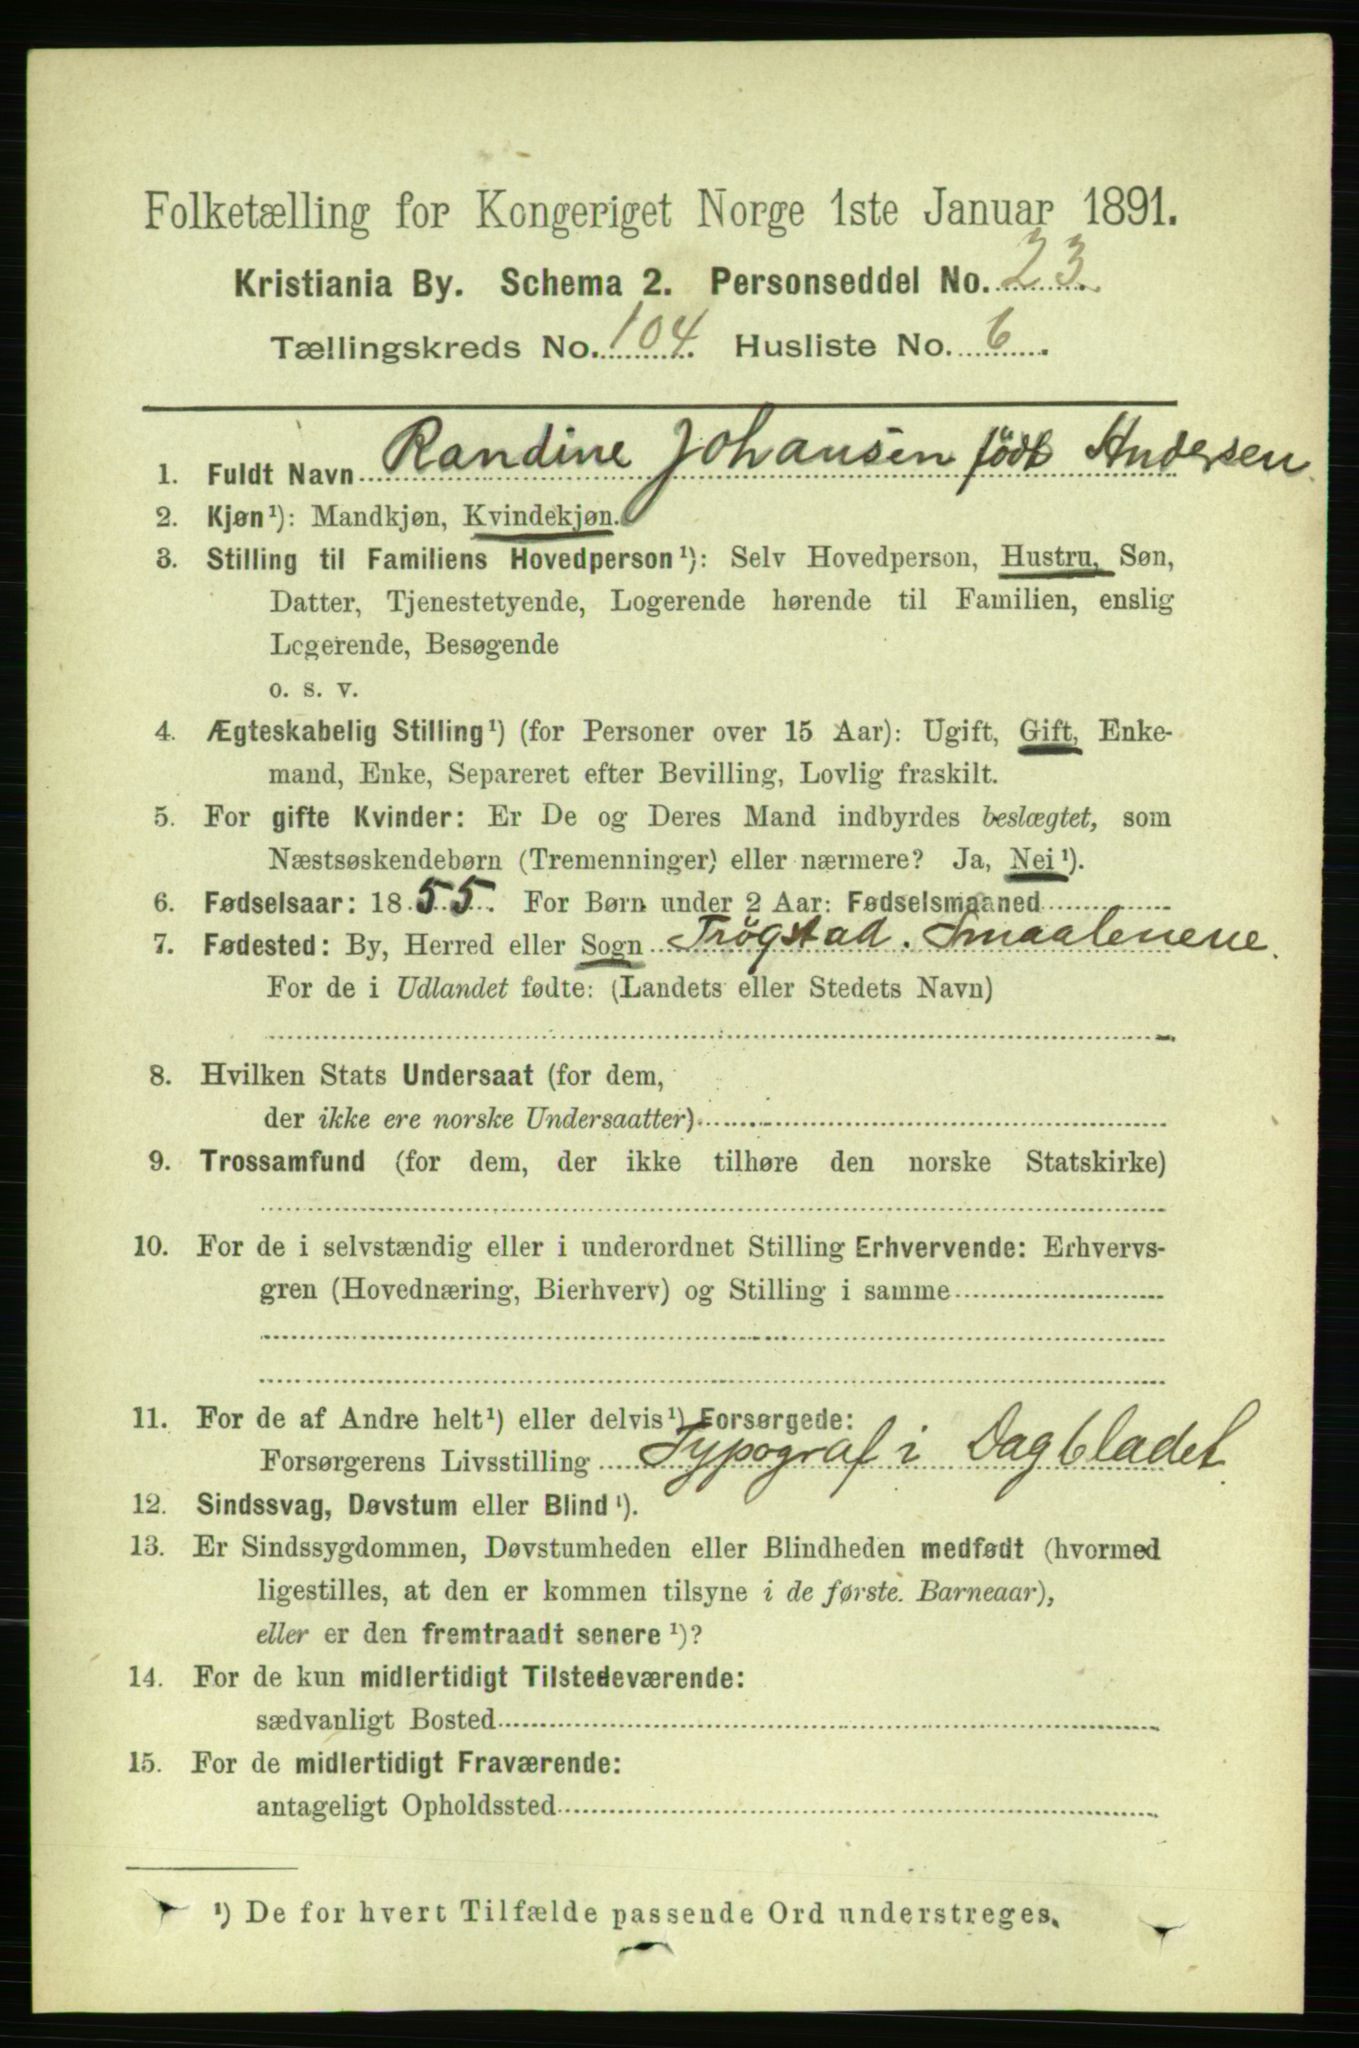 Folketælling for Kongeriget Norge 1ste Januar 1891.
Kristiania By. Schema 2. Personseddel No. 23.
Tællingskreds No. 104. Husliste No. 6.
1. Fuldt Navn Randine Johansen født Andersen.
2. Kjøn¹): Mandkjøn, Kvindekjøn.
3. Stilling til Familiens Hovedperson¹): Selv Hovedperson, Hustru, Søn,
Datter, Tjenestetyende, Logerende hørende til Familien, enslig
Logerende, Besøgende
o. s. v.
4. Ægteskabelig Stilling¹) (for Personer over 15 Aar): Ugift, Gift, Enke-
mand, Enke, Separeret efter Bevilling, Lovlig fraskilt.
5. For gifte Kvinder: Er De og Deres Mand indbyrdes beslægtet, som
Næstsøskendebørn (Tremenninger) eller nærmere? Ja, Nei¹).
6. Fødselsaar: 1855. For Børn under 2 Aar: Fødselsmaaned
7. Fødested: By, Herred eller Sogn Trøgstad. Smaalenene.
For de i Udlandet fødte: (Landets eller Stedets Navn)
8. Hvilken Stats Undersaat (for dem,
der ikke ere norske Undersaatter)
9. Trossamfund (for dem, der ikke tilhøre den norske Statskirke)
10. For de i selvstændig eller i underordnet Stilling Erhvervende: Erhvervs-
gren (Hovednæring, Bierhverv) og Stilling i samme
11. For de af Andre helt¹) eller delvis¹) Forsørgede:
Forsørgerens Livsstilling Typograf i Dagbladet.
12. Sindssvag, Døvstum eller Blind¹).
13. Er Sindssygdommen, Døvstumheden eller Blindheden medfødt (hvormed
ligestilles, at den er kommen tilsyne i de første. Barneaar),
eller er den fremtraadt senere¹)?
14. For de kun midlertidigt Tilstedeværende:
sædvanligt Bosted
15. For de midlertidigt Fraværende:
antageligt Opholdssted
¹) De for hvert Tilfælde passende Ord understreges.